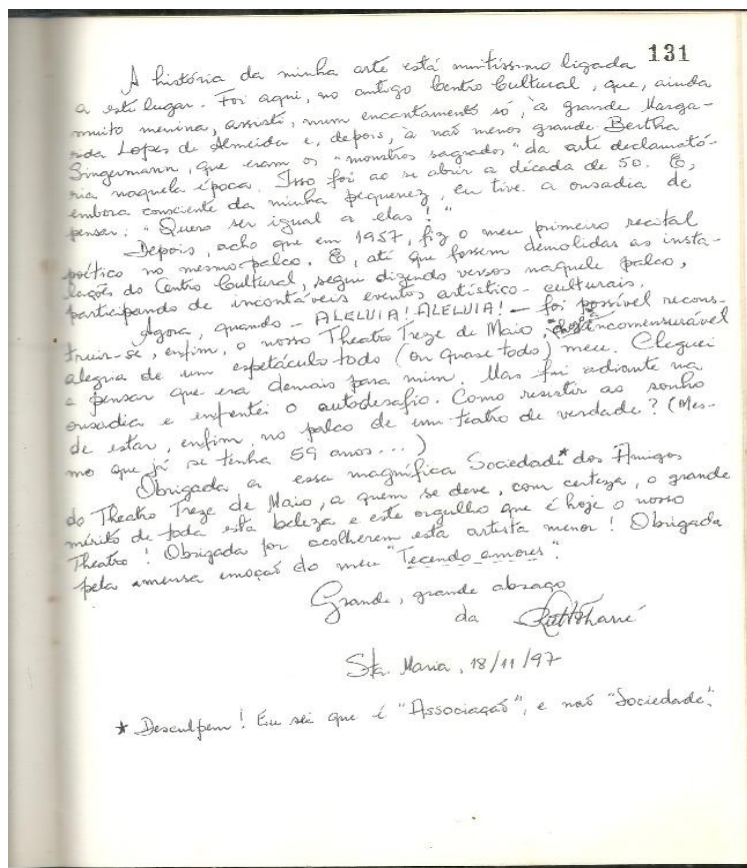 131
A história da minha arte está muitíssimo ligada
a este lugar. Foi aqui, no antigo Centro Cultural, que, ainda
muito menina, assisti, num encantamento só, à grande Marga-
rida Lopes de Almeida e, depois, à não menos grande Bertha
Singermann, que eram os "monstros sagrados" da arte declamató-
ria naquela época. Isso foi ao se abrir a década de 50. E,
embora consciente da minha pequenez, eu tive a ousadia de
pensar: "Quero ser igual a elas!"
Depois, acho que em 1957, fiz o meu primeiro recital
poético no mesmo palco. E, até que fossem demolidas as insta-
lações do Centro Cultural, segui dizendo versos naquele palco,
participando de incontáveis eventos artístico-culturais.
Agora, quando - ALELUIA! ALELUIA! - foi possível recons-
truir-se, enfim, o nosso Theatro Treze de Maio, incomensurável
alegria de um espetáculo todo (ou quase todo) meu. Cheguei
a pensar que era demais para mim. Mas fui adiante na
ousadia e enfrentei o autodesafio. Como resistir ao sonho
de estar, enfim, no palco de um teatro de verdade? (Mes-
mo que já se tenha 59 anos...)
Obrigada a essa magnífica Sociedade* dos Amigos
do Theatro Treze de Maio, a quem se deve, com certeza, o grande
mérito de toda esta beleza e este orgulho que é hoje o nosso
Theatro! Obrigada por acolherem esta artista menor! Obrigada
pela imensa emoção do meu "Tecendo amores".
Grande, grande abraço
da
Sta. Maria, 18/11/97
* Desculpem! Eu sei que é "Associação", e não "Sociedade".